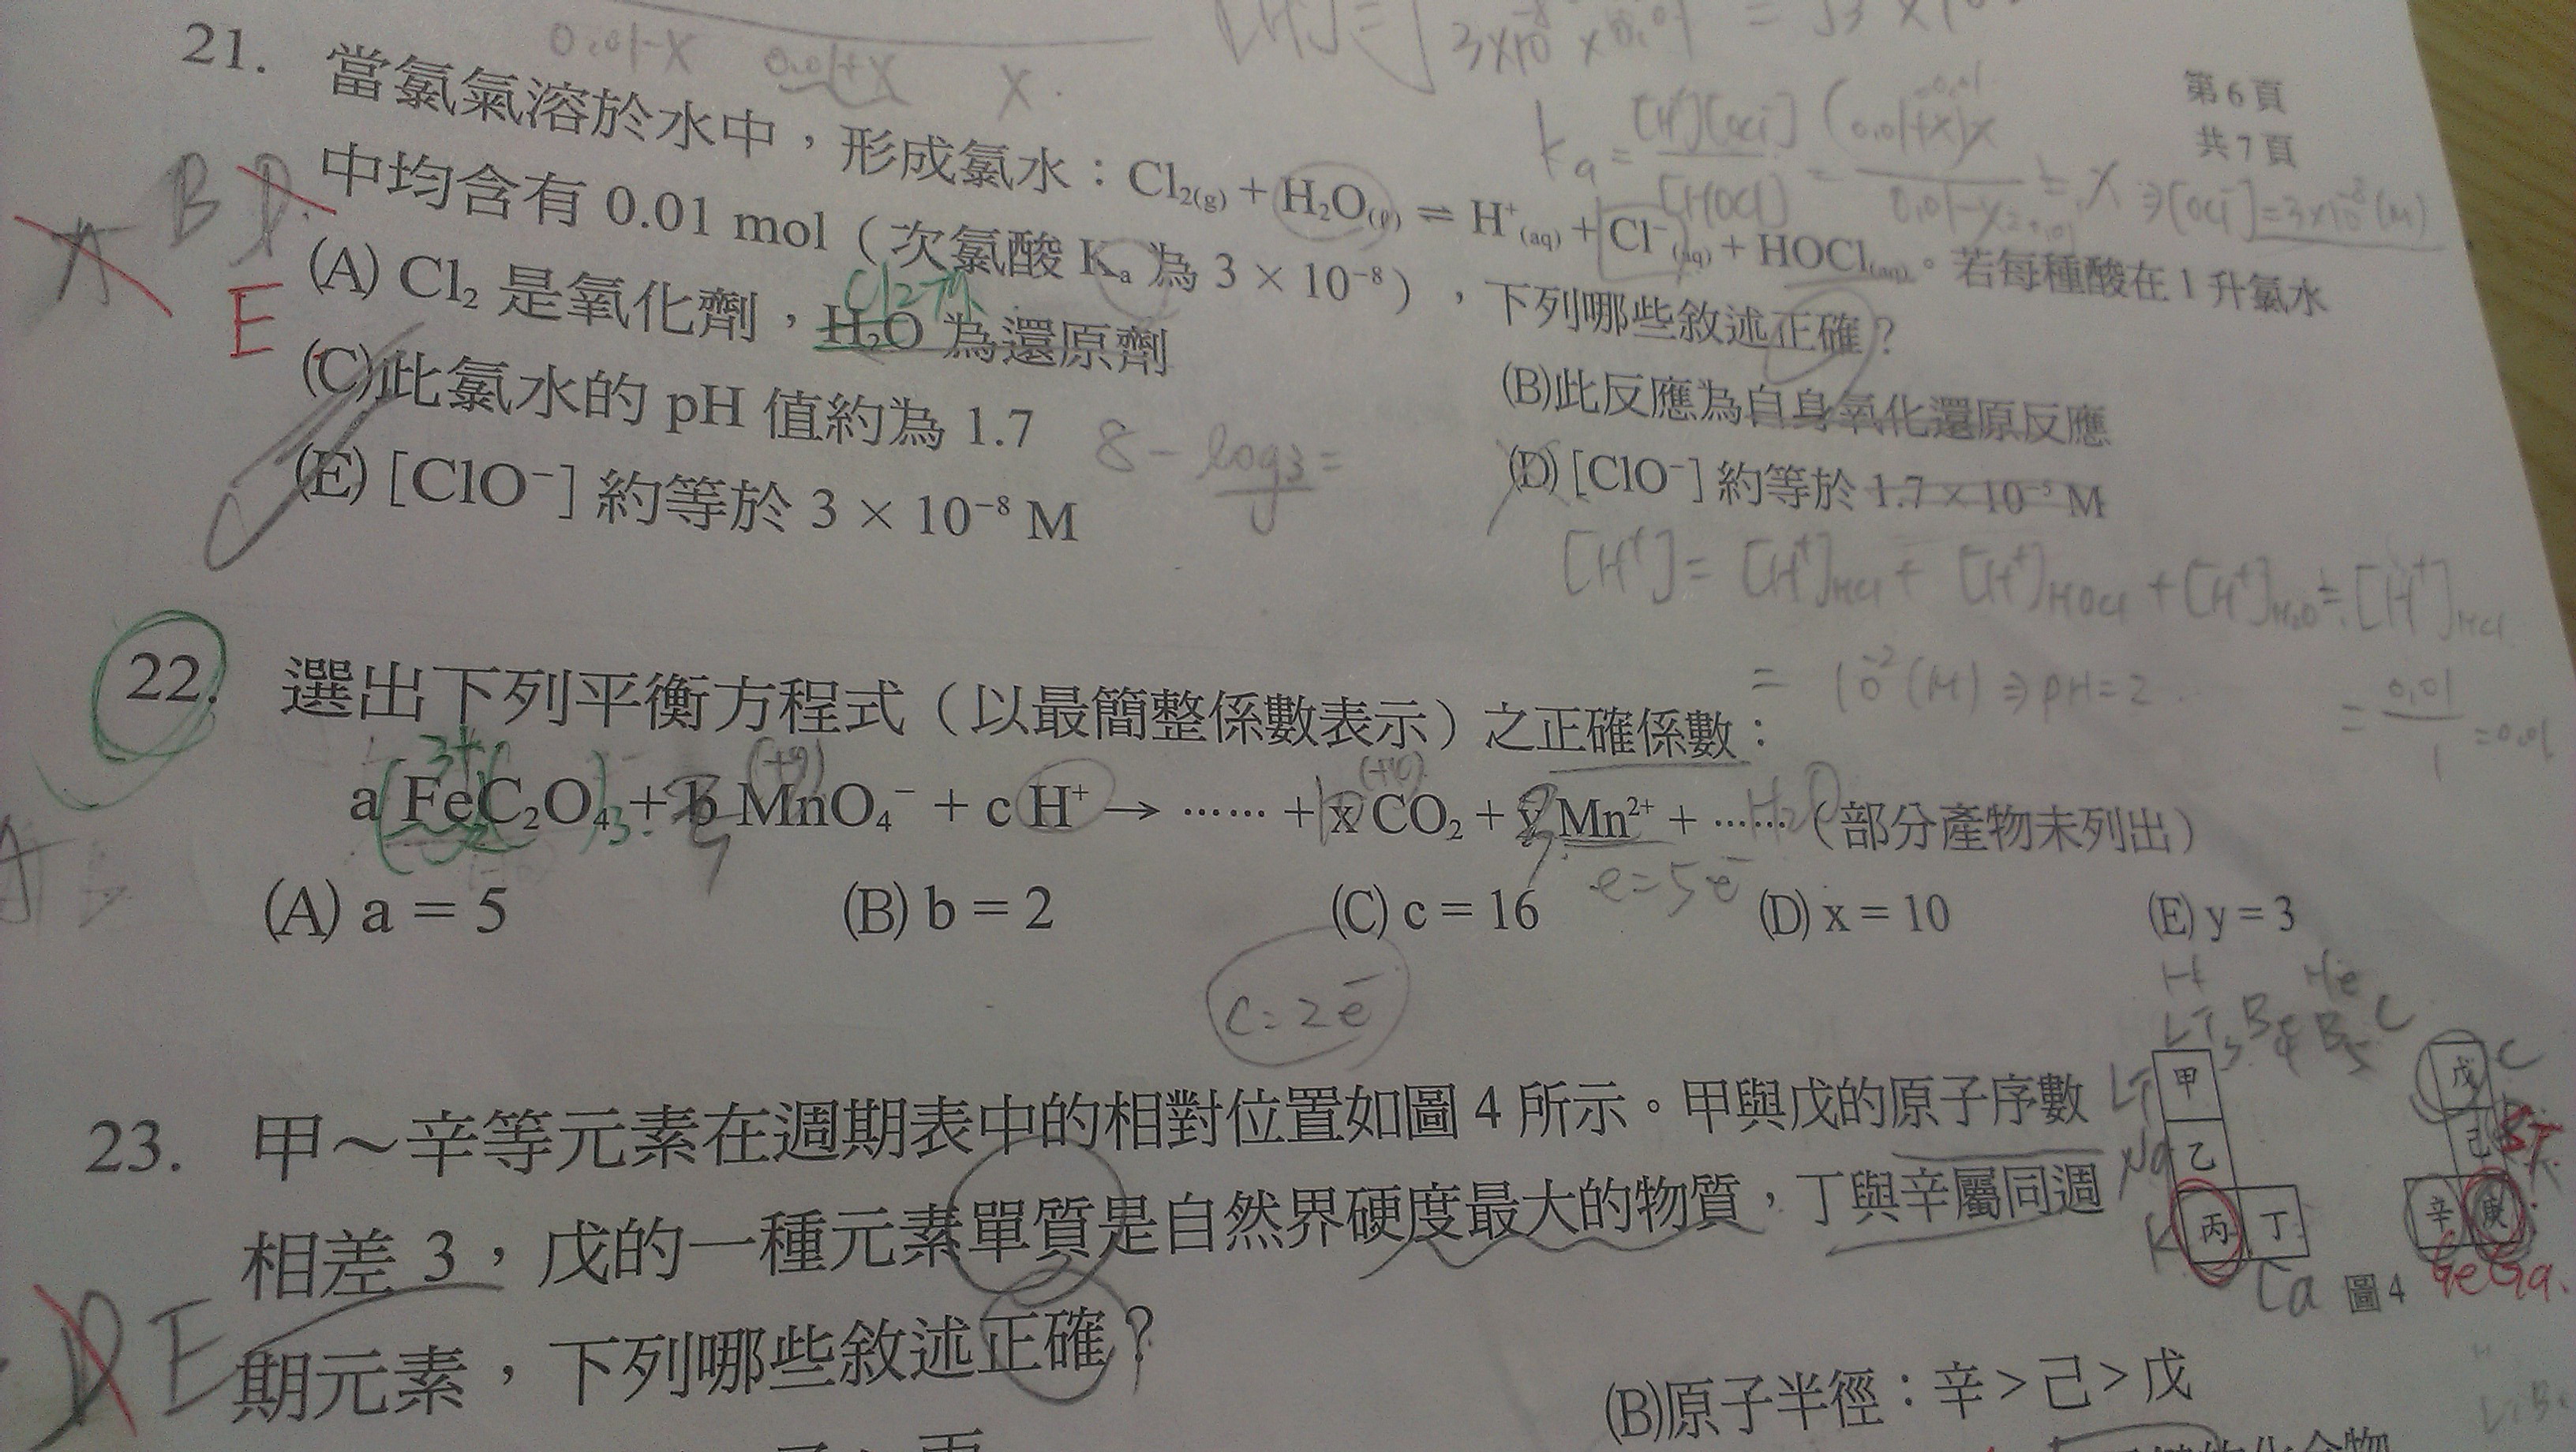 0.01-X 0.01+X X
第6頁
共7頁
21. 當氯氣溶於水中，形成氯水：Cl₂(g) + H₂O(ℓ) ⇌ H⁺(aq) + Cl⁻(aq) + HOCl(aq)。若每種酸在 1 升氯水
中均含有 0.01 mol（次氯酸 Ka 為 3 × 10⁻⁸），下列哪些敘述正確？
B D
E
(A) Cl₂ 是氧化劑，H₂O 為還原劑
(B)此反應為自身氧化還原反應
(C)此氯水的 pH 值約為 1.7
(D) [ClO⁻] 約等於 1.7 × 10⁻⁵ M
(E) [ClO⁻] 約等於 3 × 10⁻⁸ M
8 - log3 =
[H⁺] = [H⁺]HCl + [H⁺]HOCl + [H⁺]H₂O ≒ [H⁺]HCl
= 10⁻²(M) ⇒ pH = 2
= 0.01/1 = 0.01
22. 選出下列平衡方程式（以最簡整係數表示）之正確係數：
a FeC₂O₄ + b MnO₄⁻ + c H⁺ → …… + x CO₂ + y Mn²⁺ + ……（部分產物未列出）
e = 5e⁻
(A) a = 5 (B) b = 2 (C) c = 16 (D) x = 10 (E) y = 3
C = 2e⁻
23. 甲～辛等元素在週期表中的相對位置如圖 4 所示。甲與戊的原子序數
相差 3，戊的一種元素單質是自然界硬度最大的物質，丁與辛屬同週
期元素，下列哪些敘述正確？
D E
H He
甲 戊 C
乙 己
K 丙 丁 辛 庚
Ca Ge Ga
圖 4
(B)原子半徑：辛 > 己 > 戊